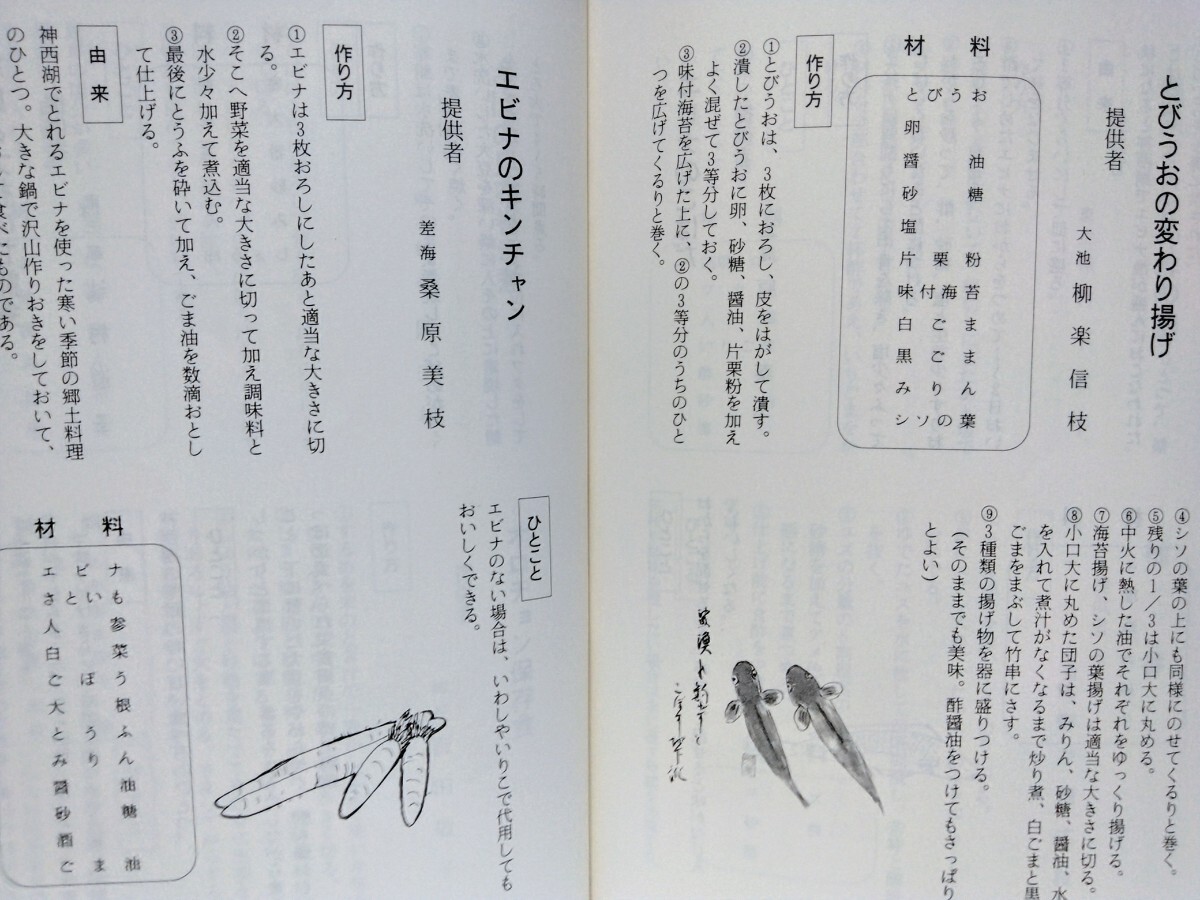 とびうおの変わり揚げ
提供者
大池 柳楽信枝
材料
とびうお
卵
醤油
砂糖
塩
片栗粉
味付海苔
白ごま
黒ごま
みりん
シソの葉
作り方
①とびうおは、3枚におろし、皮をはがして潰す。
②潰したとびうおに卵、砂糖、醤油、片栗粉を加え
よく混ぜて3等分しておく。
③味付海苔を広げた上に、②の3等分のうちのひと
つを広げてくるりと巻く。
④シソの葉の上にも同様にのせてくるりと巻く。
⑤残りの1/3は小口大に丸める。
⑥中火に熱した油でそれぞれをゆっくり揚げる。
⑦海苔揚げ、シソの葉揚げは適当な大きさに切る。
⑧小口大に丸めた団子は、みりん、砂糖、醤油、水
を入れて煮汁がなくなるまで炒り煮、白ごまと黒
ごまをまぶして竹串にさす。
⑨3種類の揚げ物を器に盛りつける。
(そのままでも美味。酢醤油をつけてもさっぱり
とよい)
エビナのキンチャン
提供者
差海 桑原美枝
作り方
①エビナは3枚おろしにしたあと適当な大きさに切
る。
②そこへ野菜を適当な大きさに切って加え調味料と
水少々加えて煮込む。
③最後にとうふを砕いて加え、ごま油を数滴おとし
て仕上げる。
由来
神西湖でとれるエビナを使った寒い季節の郷土料理
のひとつ。大きな鍋で沢山作りおきをしておいて、
食べたものである。
ひとこと
エビナのない場合は、いわしやいりこで代用しても
おいしくできる。
材料
エビナ
さといも
人参
白菜
ごぼう
大根
とうふ
みりん
醤油
砂糖
酒
ごま油